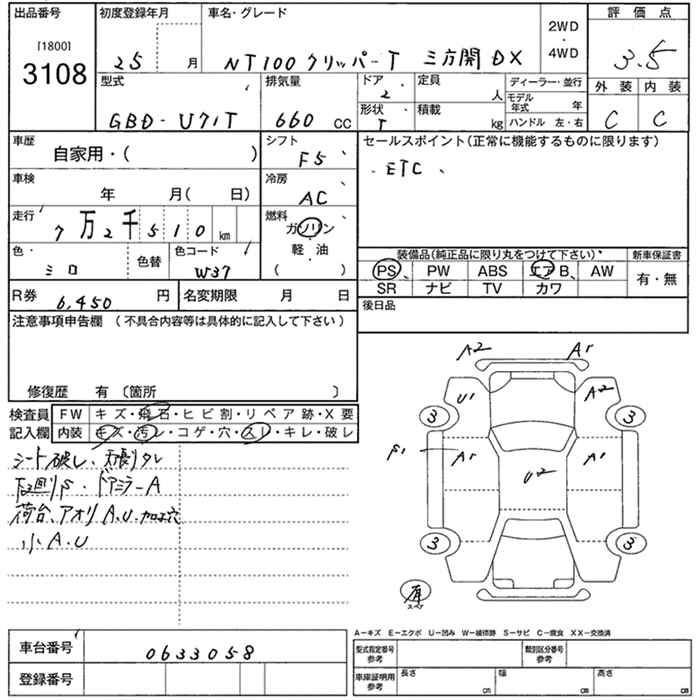 出品番号
[1800]
3108
初度登録年月
25 月
車名・グレード
NT100 クリッパーT 三方開 DX
2WD
・
4WD
評価点
3.5
外装 内装
C C
型式
GBD-U71T
排気量
660 CC
ドア
2
定員
人
形状
T
積載
kg
ディーラー・並行
モデル年式 年
ハンドル 左・右
車歴
自家用・( )
シフト
F5
セールスポイント(正常に機能するものに限ります)
ETC
車検
年 月( 日)
冷房
AC
走行
7万2千510 km
燃料
ガソリン
軽・油
( )
色
シロ
色替
色コード
W37
装備品(純正品に限り丸をつけて下さい)
新車保証書
PS PW ABS エアB AW
有・無
SR ナビ TV カワ
R券
6,450 円
名変期限 月 日
後日品
注意事項申告欄 (不具合内容等は具体的に記入して下さい)
修復歴 有 〔箇所 〕
検査員記入欄
FW キズ・飛石・ヒビ割・リペア跡・X要
内装 キズ・汚レ・コゲ・穴・スレ・キレ・破レ
シート破レ、天張リタレ
下廻リS・ドアミラーA
荷台、アオリA.U.加工穴
小A.U
A2 A1
U1 A2
3 3
S1 A1 A1
U2
3 3
有
スペア
A−キズ E−エクボ U−凹み W−補修跡 S−サビ C−腐食 XX−交換済
車台番号
0633058
登録番号
型式指定番号
参考
類別区分番号
参考
車庫証明用
参考
長さ cm
幅 cm
高さ cm